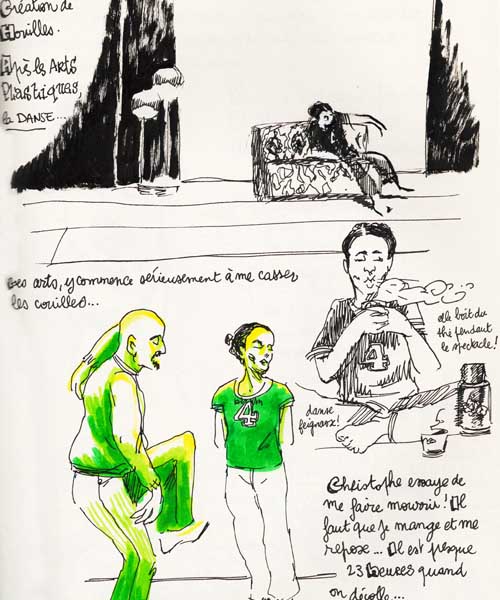 Création de
Houilles.
Après les Arts
Plastiques,
la DANSE...
Les arts, y commence sérieusement à me casser
les couilles...
elle boit du
thé pendant
le spectacle!
4
4
danse
feignasse!
Christophe essaye de
me faire mourrir! Il
faut que je mange et me
repose... Il est presque
23 heures quand
on décolle...